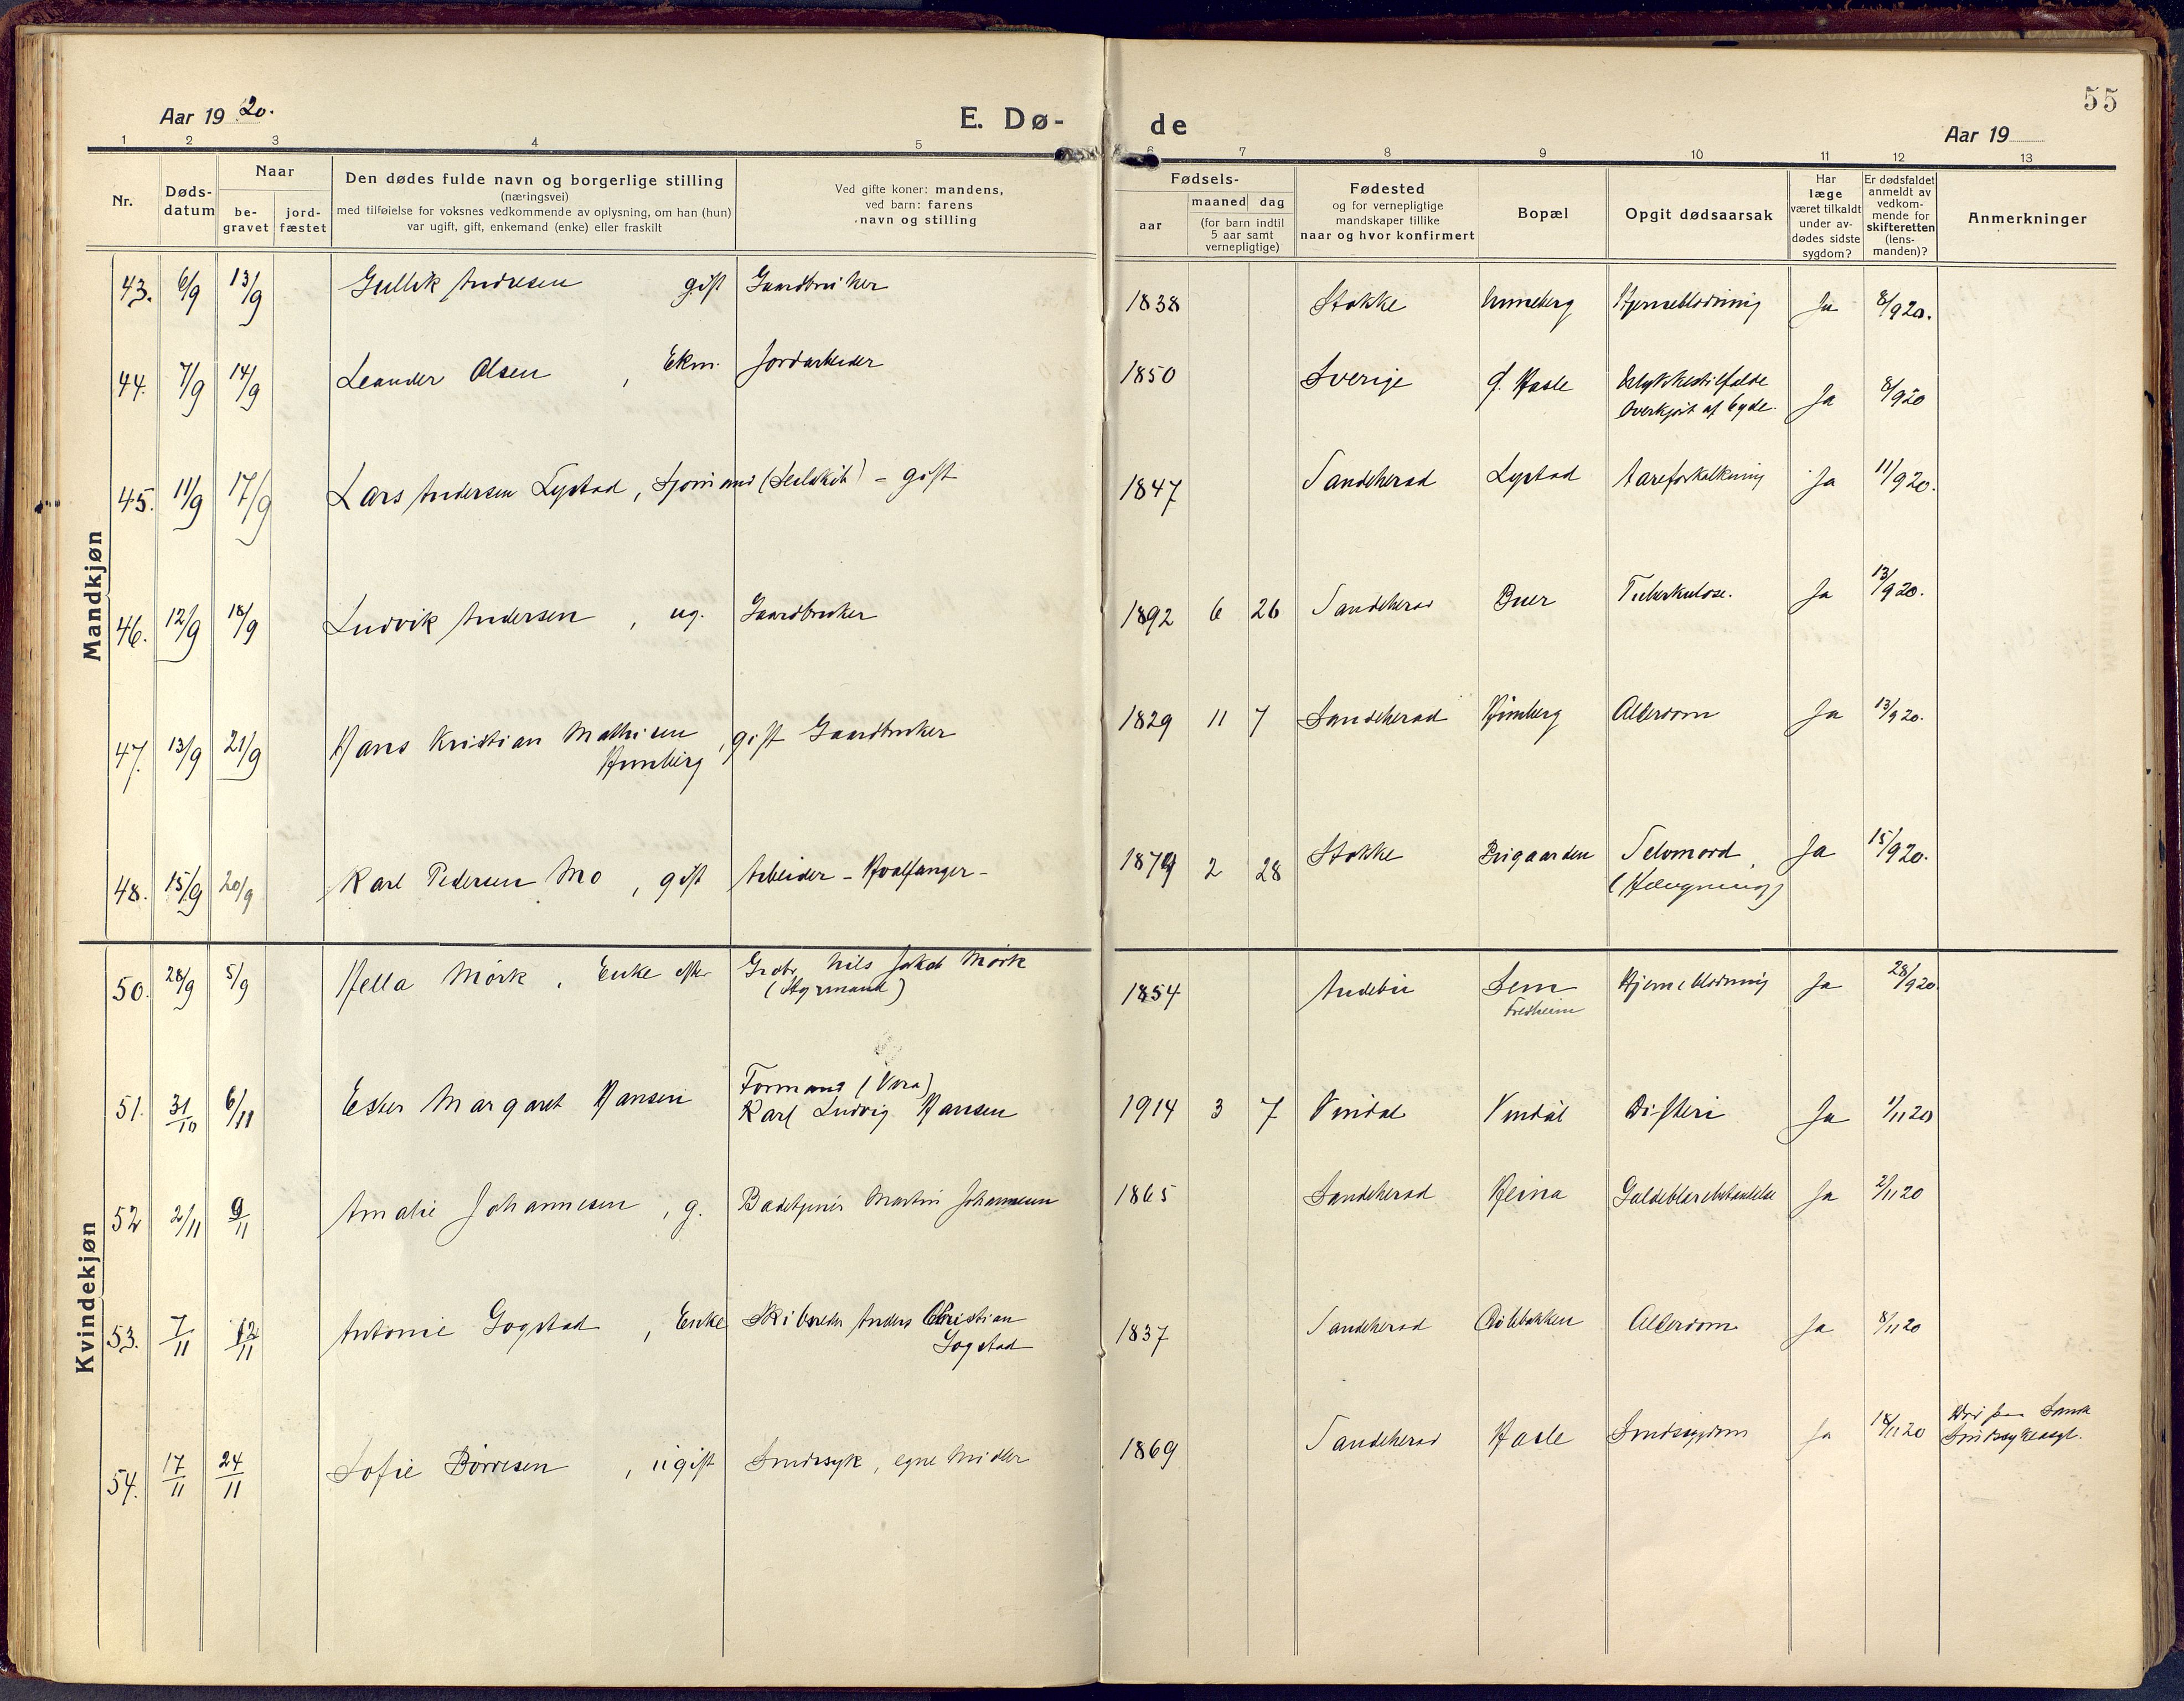 55
Aar 1920.
E. Dø-
de
Aar 19
1 2 3 4 5 6 7 8 9 10 11 12 13
Nr.
Døds-
datum
Naar
be-
gravet
jord-
fæstet
Den dødes fulde navn og borgerlige stilling
(næringsvei)
med tilføielse for voksnes vedkommende av oplysning, om han (hun)
var ugift, gift, enkemand (enke) eller fraskilt
Ved gifte koner: mandens,
ved barn: farens
navn og stilling
Fødsels-
aar
maaned dag
(for barn indtil
5 aar samt
vernepligtige)
Fødested
og for vernepligtige
mandskaper tillike
naar og hvor konfirmert
Bopæl
Opgit dødsaarsak
Har
læge
været tilkaldt
under av-
dødes sidste
sygdom?
Er dødsfaldet
anmeldt av
vedkom-
mende for
skifteretten
(lens-
manden)?
Anmerkninger
Mandkjøn
43. 6/9 13/9 Gullik Andresen gift Gaardbruker 1838 Stokke Unneberg Hjerneblødning Ja 8/9 20.
44. 7/9 14/9 Leander Olsen, Ekm. Jordarbeider 1850 Sverige Hasle Ulykkestilfælde Ja 8/9 20
Overkjørt af
45. 11/9 17/9 Lars Andersen Lystad, Sjømand - gift 1847 Sandeherad Lystad Aareforkalkning Ja 11/9 20.
46. 12/9 18/9 Ludvik Andersen, ug. Gaardbruker 1892 6 26 Sandeherad Buer Tuberkulose. Ja 13/9 20.
47. 13/9 21/9 Hans Kristian Mathisen, gift Gaardbruker 1829 11 7 Sandeherad Himberg Alderdom Ja 13/9 20.
Himberg
48. 15/9 20/9 Karl Pedersen Mo, gift Arbeider - Hvalfanger - 1879 2 28 Stokke Bugaarden Selvmord, Ja 15/9 20.
(Hængning)
Kvindekjøn
50. 28/9 5/9 Hella Mørk, Enke efter Grdbr. Nils Jakob Mørk 1854 Andebu Sem Hjerneblødning Ja 28/9 20
(Styrmand) Fredheim
51. 31/10 6/11 Ester Margaret Hansen Formand (Vera)
Karl Ludvig Hansen 1914 3 7 Vindal Vindal Difteri Ja 1/11 20
52 2/11 9/11 Amalie Johannesen, g. Badetjener Martin Johannesen 1865 Sandeherad Heina Galdeblærebetændelse Ja 2/11 20
53. 7/11 12/11 Antonie Gogstad, Enke Skibsreder Anders Christian 1837 Sandeherad Alderdom Ja 8/11 20
Gogstad
54. 17/11 24/11 Sofie Børresen, ugift Sindssyk, egne Midler 1869 Sandeherad Hasle Sindssygdom Ja 18/11 20
Sindssykeasyl.